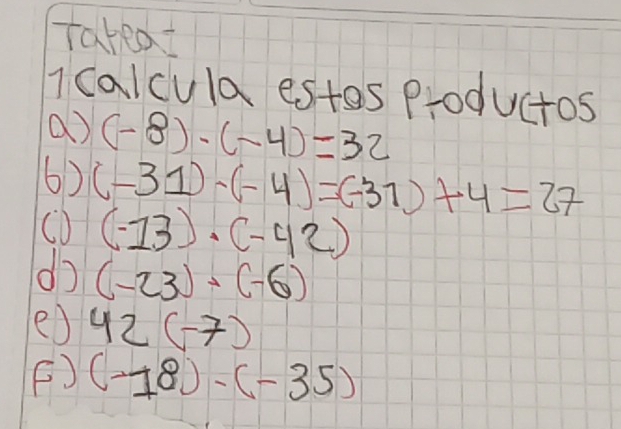 Tarea:
1 Calcula estos Productos
a) (-8) · (-4) = 32
b) (-31) · (-4) = (-31) + 4 = 27
c) (-13) · (-42)
d) (-23) · (-6)
e) 42 (-7)
F) (-18) · (-35)